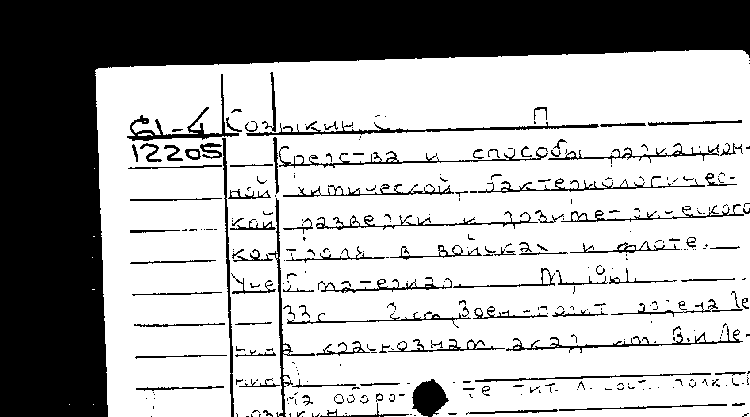 61-4 Созыкин, С. П
12205 Средства и способы радиацион-
ной химической, бактериологичес-
кой разведки и дозиметрического
контроля в войсках и флоте.
Учеб. материал. М, 1961.
33с 2 сх, Воен-полит ордена Ле-
нина краснознам. акад им. В.И Ле-
нина).
На оборо- те тит. л. сост. полк С.
Созыкин.